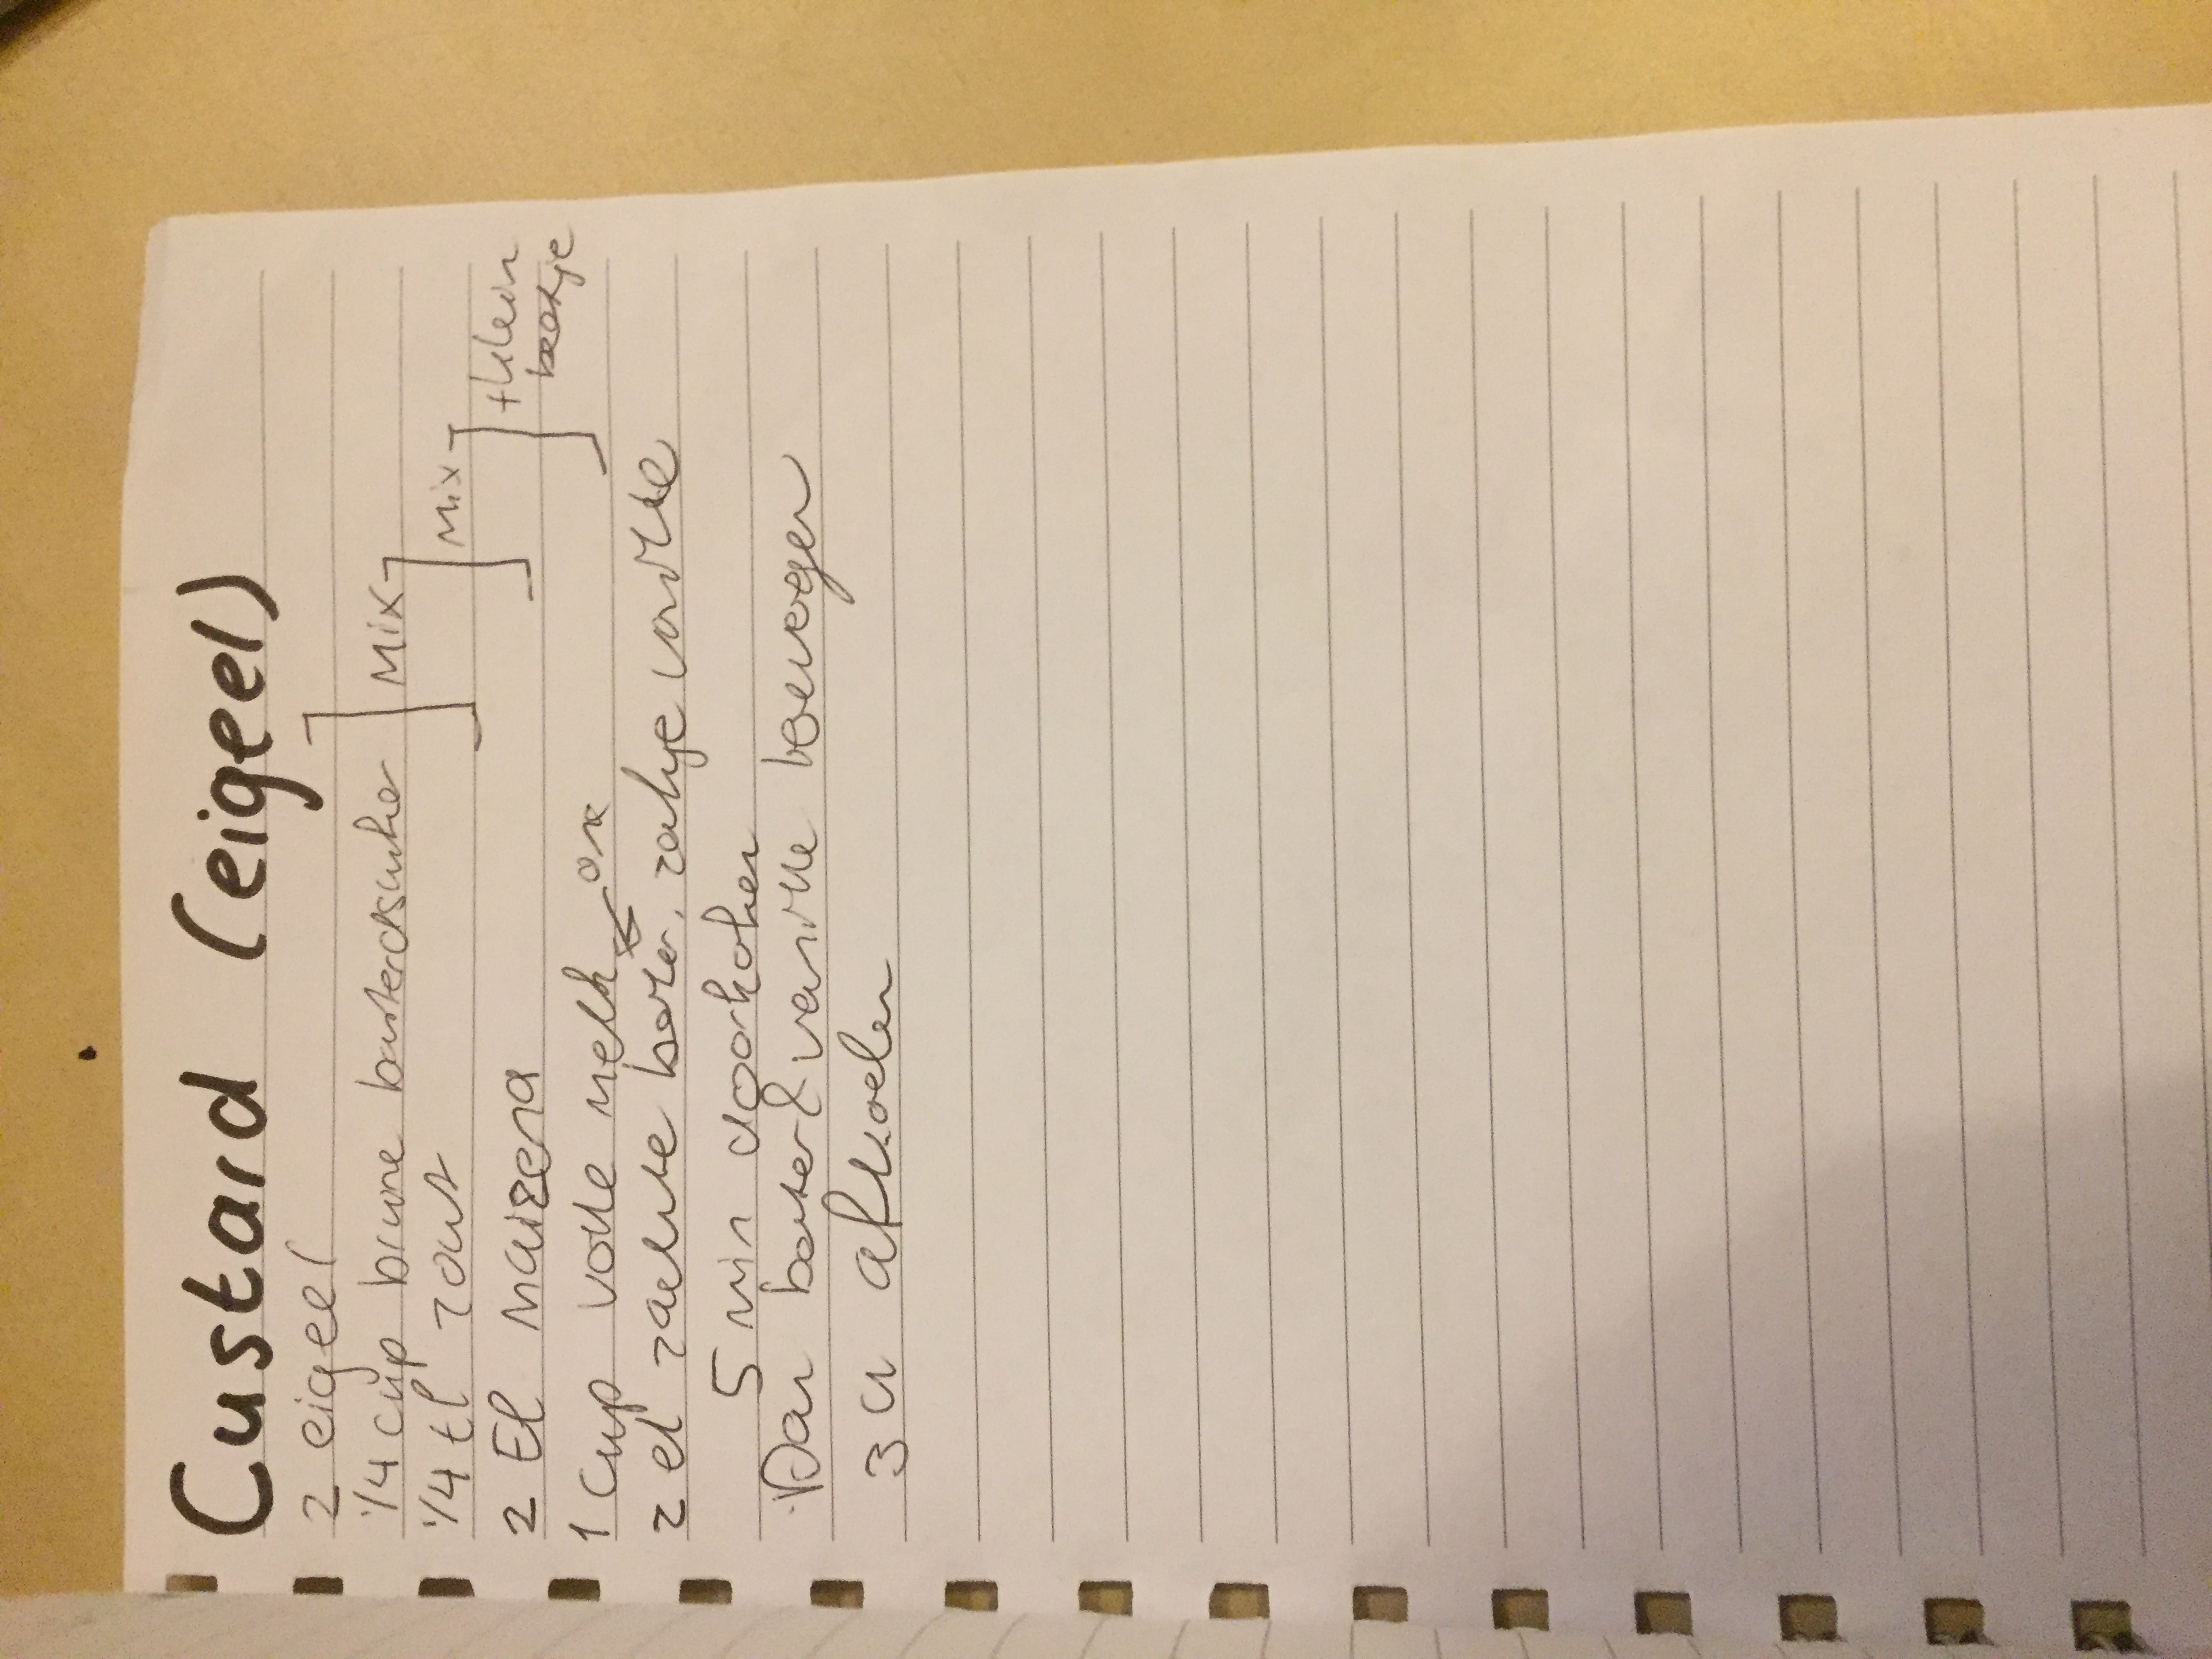 Custard (eigeel)
2 eigeel
1/4 cup bruine basterdsuiker
Mix
1/4 tl zout
Mix
2 El Maizena
+ klein
beetje
1 cup volle melk
2 el zachte boter, zakje vanille
5 min doorkoken
Dan boter & vanille toevoegen
3 u afkoelen